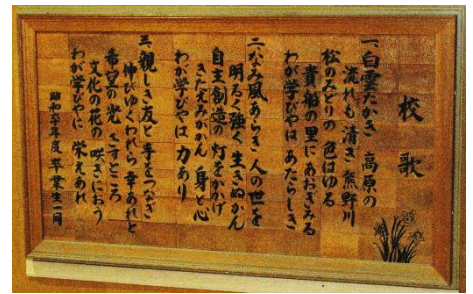 校歌
一、白雲たかき 高原の
流れも清き 熊野川
松のみどりの 色はゆる
貴船の里にあおぎみる
わが学びやは あたらしき
二、なみ風あらき 人の世を
明るく強く 生きぬかん
自主創造の 灯をかかげ
きたえみがかん 身と心
わが学びやは 力あり
三、親しき友と 手をつなぎ
伸びゆくわれら 幸あれと
希望の光 さすところ
文化の花の 咲きにおう
わが学びやに 栄えあれ
年度 卒業生一同